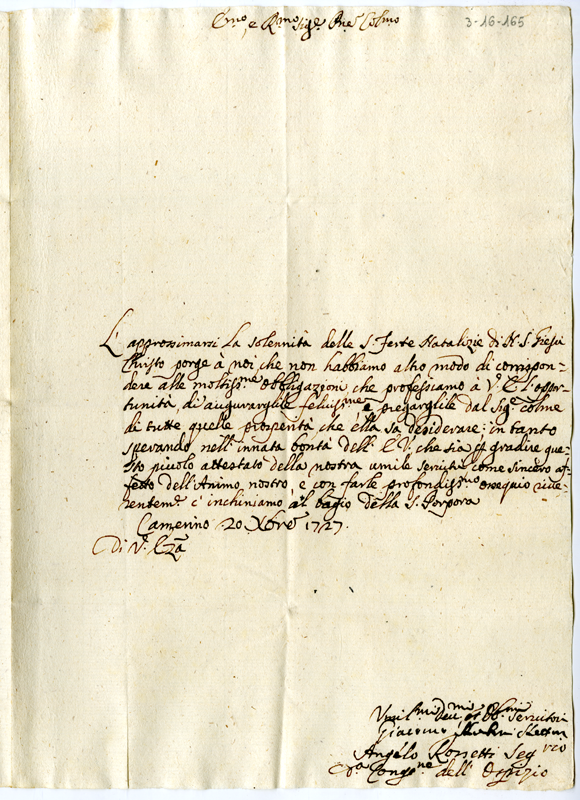 Em.o e R.mo Sig.r P.ne Colmo
3-16-165
L'approssimarsi la solennità delle S. Feste Natalizie di N. S. Giesù
Christo porge à noi che non habbiamo altro modo di corrispon-
dere alle moltiss.me obbligazioni che professiamo à V. E. l'oppor-
tunità, di augurarglile feliciss.me e pregarglile dal Sig.e colme
di tutte quelle prosperità che ella sa desiderare: in tanto
sperando nell'innata bontà dell'E. V. che sia gradire que-
sto picciolo attestato della nostra umile servitù come sincero af-
fetto dell'Animo nostro, e con farle profondiss.mo ossequio rive-
rentem.e c'inchiniamo al bagio della S. Porpora
Camerino 20 Xbre 1727.
Di V. Eza
Umil.mi dev.mi et Obb.mi Servitori
Giacomo
Angelo Rossetti Seg.rio
Cong.ne dell'Ospizio